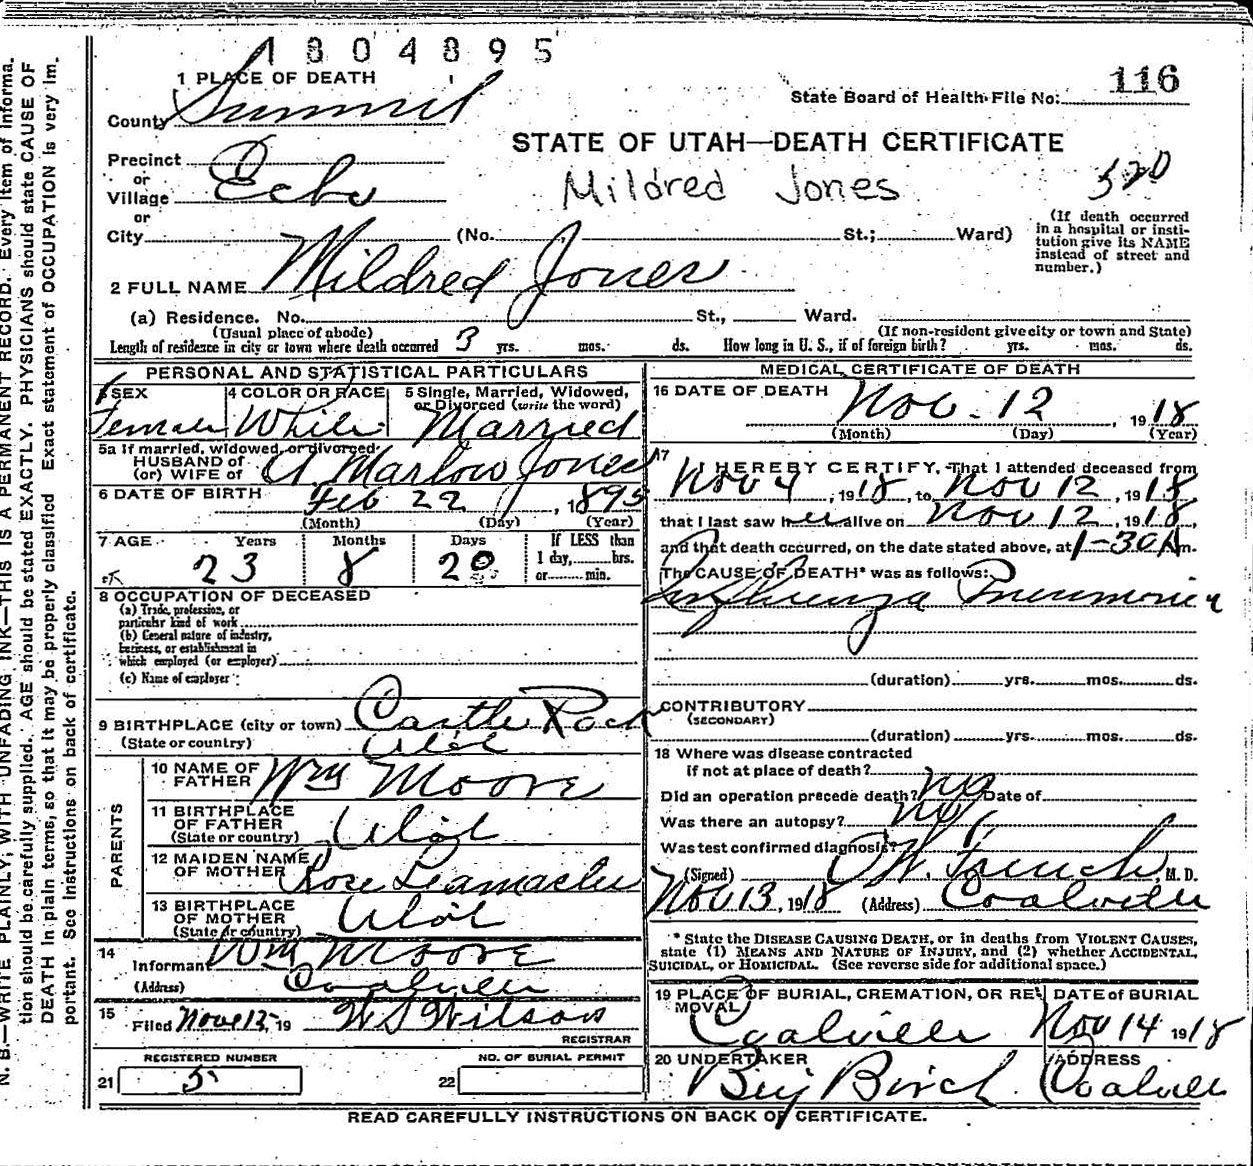 1804895
1 PLACE OF DEATH
State Board of Health File No: 116
County Summit
STATE OF UTAH—DEATH CERTIFICATE
Precinct
or
Village Echo
Mildred Jones
520
or
City (No. St.; Ward)
(If death occurred in a hospital or insti-
tution give its NAME instead of street and number.)
2 FULL NAME Mildred Jones
(a) Residence. No. St., Ward.
(Usual place of abode) (If non-resident give city or town and State)
Length of residence in city or town where death occurred 3 yrs. mos. ds. How long in U. S., if of foreign birth? yrs. mos. ds.
PERSONAL AND STATISTICAL PARTICULARS
3 SEX Female
4 COLOR OR RACE White
5 Single, Married, Widowed, or Divorced (write the word) Married
5a If married, widowed, or divorced
HUSBAND of
(or) WIFE of A. Marlow Jones
6 DATE OF BIRTH Feb 22, 1895
(Month) (Day) (Year)
7 AGE Years Months Days If LESS than
1 day, hrs.
or min.
23 8 20
8 OCCUPATION OF DECEASED
(a) Trade, profession, or
particular kind of work
(b) General nature of industry,
business, or establishment in
which employed (or employer)
(c) Name of employer
9 BIRTHPLACE (city or town) Castle Rock
(State or country) Utah
PARENTS
10 NAME OF FATHER Wm Moore
11 BIRTHPLACE OF FATHER
(State or country) Utah
12 MAIDEN NAME OF MOTHER Rose
13 BIRTHPLACE OF MOTHER
(State or country) Utah
14 Informant Wm Moore
(Address) Coalville
15 Filed Nov 12, 19 W S Wilson
REGISTRAR
REGISTERED NUMBER
21 5
NO. OF BURIAL PERMIT
22
MEDICAL CERTIFICATE OF DEATH
16 DATE OF DEATH Nov. 12, 1918
(Month) (Day) (Year)
17 I HEREBY CERTIFY, That I attended deceased from
Nov 4, 1918, to Nov 12, 1918
that I last saw her alive on Nov 12, 1918,
and that death occurred, on the date stated above, at 1-30 A m.
The CAUSE OF DEATH* was as follows:
Influenza Pneumonia
(duration) yrs. mos. ds.
CONTRIBUTORY
(SECONDARY)
(duration) yrs. mos. ds.
18 Where was disease contracted
if not at place of death?
Did an operation precede death? no Date of
Was there an autopsy? no
Was test confirmed diagnosis?
(Signed) W. French, M. D.
Nov 13, 1918 (Address) Coalville
* State the DISEASE CAUSING DEATH, or in deaths from VIOLENT CAUSES,
state (1) MEANS AND NATURE OF INJURY, and (2) whether ACCIDENTAL,
SUICIDAL, or HOMICIDAL. (See reverse side for additional space.)
19 PLACE OF BURIAL, CREMATION, OR RE-
MOVAL Coalville
DATE of BURIAL
Nov 14 1918
20 UNDERTAKER
Benj Birch
ADDRESS
Coalville
READ CAREFULLY INSTRUCTIONS ON BACK OF CERTIFICATE.
N. B.—WRITE PLAINLY, WITH UNFADING INK—THIS IS A PERMANENT RECORD. Every item of informa-
tion should be carefully supplied. AGE should be stated EXACTLY. PHYSICIANS should state CAUSE OF
DEATH in plain terms, so that it may be properly classified. Exact statement of OCCUPATION is very im-
portant. See instructions on back of certificate.